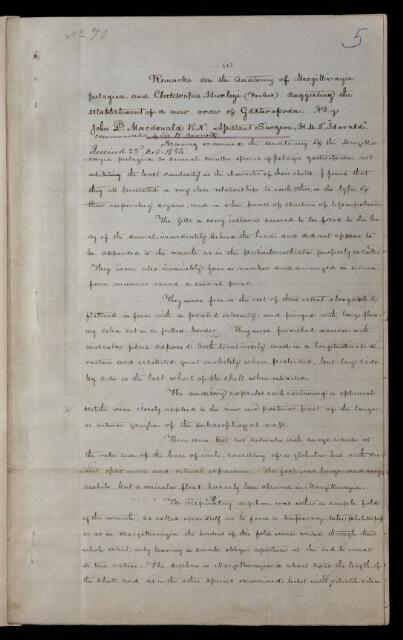 No 70
5
(1)
Remarks on the Anatomy of Macgillivrayia
pelagica and Cheletropis Huxleyi (Forbes), suggesting the
establishment of a new order of Gasteropoda. By
John D. Macdonald R.N. Assistant Surgeon, H.M.S. "Herald"
communicated by
Received 23d Novr 1854
Having examined the anatomy of the Macgilliv-
rayia pelagica & several smaller species of pelagic gasteropoda not
exhibiting the least similarity in the character of their shells, I found that
they all presented a very close relationship to each other in the type of
their respiratory organs, and in other points of structure of less importance
The gills in every instance seemed to be fixed to the bo-
dy of the animal immediately behind the head, and did not appear to
be appended to the mantle as in the pectinibranchiata properly so called
They were also invariably four in number and arranged in a cruci-
form manner round a central point.
They were free in the rest of their extent elongated &
flattened in form with a pointed extremity, and fringed with long flow-
ing cilia set in a frilled border. They were furnished moreover with
muscular fibres disposed both transversely and in a longitudinal di-
rection and exhibited great mobility when protruded, but lay side
by side in the last whorl of the shell when retracted.
The auditory capsules each containing a spherical
x otolithe were closely applied to the inner and posterior part of the larger
or anterior ganglion of the subœsophageal mass.
There were but two tentacula with an eye situate at
the outer side of the base of each, consisting of a globular lens with
optic nerve and retinal expansion. The foot was large and very
mobile, but a vesicular float has only been observed in Macgillivrayia.
The respiratory siphon, was either a simple fold
of the mantle, so rolled upon itself as to form a temporary tube (Cheletropis)
or as in Macgillivrayia the borders of the fold were united through their
whole extent, only leaving a small oblique aperture at the end to reveal
its true nature. The siphon in Macgillivrayia is about twice the length of
the shell and as in the other species examined beset with vibratile cilia